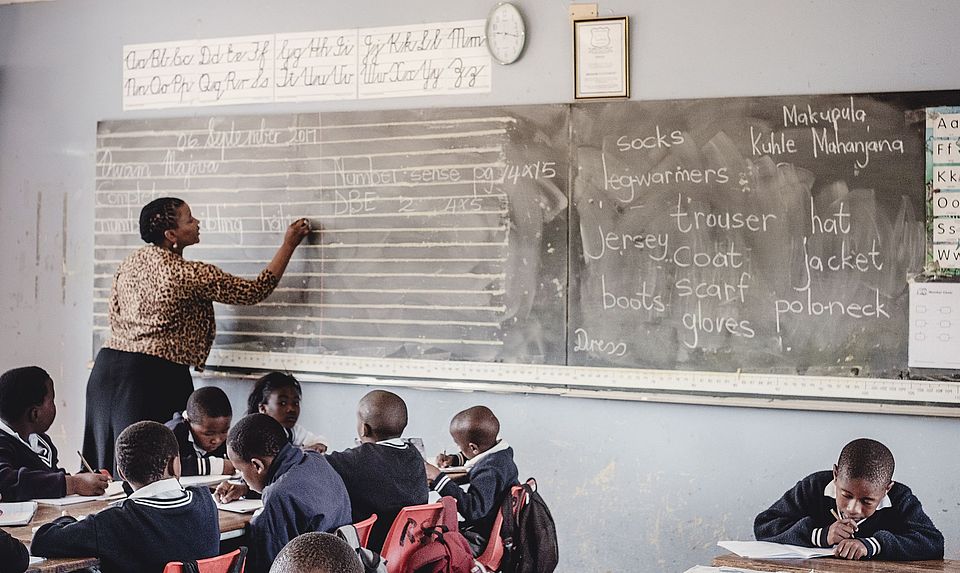 Aa Bb Cc Dd Ee Ff Gg Hh Ii Jj Kk Ll Mm
Nn Oo Pp Qq Rr Ss Tt Uu Vv Ww Xx Yy Zz
06 September 2017
Number sense pg 14x15
DBE 2 4x5
number
socks
leg-warmers
trouser
hat
Jersey
Coat
jacket
boots
scarf
polo-neck
gloves
Dress
Makupula
Kuhle Mahanjana
Aa
Ff
Kk
Oo
Ss
Ww